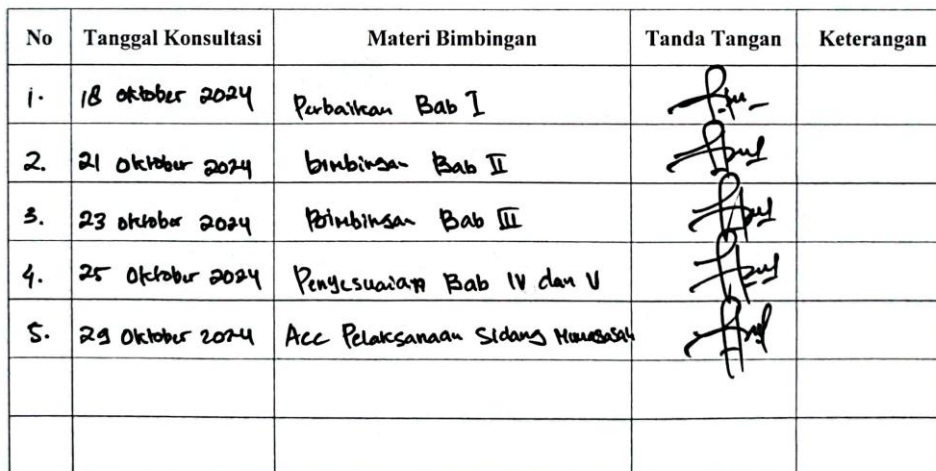 No Tanggal Konsultasi Materi Bimbingan Tanda Tangan Keterangan
1. 18 Oktober 2024 Perbaikan Bab I
2. 21 Oktober 2024 bimbingan Bab II
3. 23 oktober 2024 Bimbingan Bab III
4. 25 Oktober 2024 Penyesuaian Bab IV dan V
5. 29 Oktober 2024 Acc Pelaksanaan Sidang Munaqasah